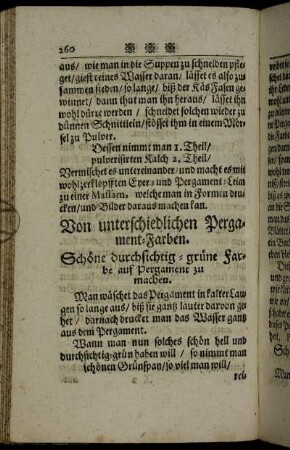 260 ❀ ❀ ❀
aus/ wie man in die Suppen zu schneiden pfle-
get/ giest reines Wasser daran/ lässet es also zu-
sammen sieden/ so lange/ biß der Käs Fasen ge-
winnet/ dann thut man ihn heraus/ lässet ihn
wohl dürre werden / schneidet solchen wieder zu
dünnen Schnittlein/ stösset ihm in einem Mör-
sel zu Pulver.
Dessen nimmt man 1. Theil/
pulverisirten Kalch 2. Theil/
Vermischet es untereinander/ und macht es mit
wohl zerklopfften Eyer- und Pergament-Leim
zu einer Massam, welche man in Formen dru-
cken/ und Bilder daraus machen kan.
Von unterschiedlichen Perga-
ment-Farben.
Schöne durchsichtig-grüne Far-
be auf Pergament zu
machen.
Man wäschet das Pergament in kalter Lau-
gen so lange aus/ biß sie gantz lauter darvon ge-
het / darnach drucket man das Wasser gantz
aus dem Pergament.
Wann man nun solches schön hell und
durchsichtig-grün haben will / so nimmt man
schönen Grünspan/ so viel man will/